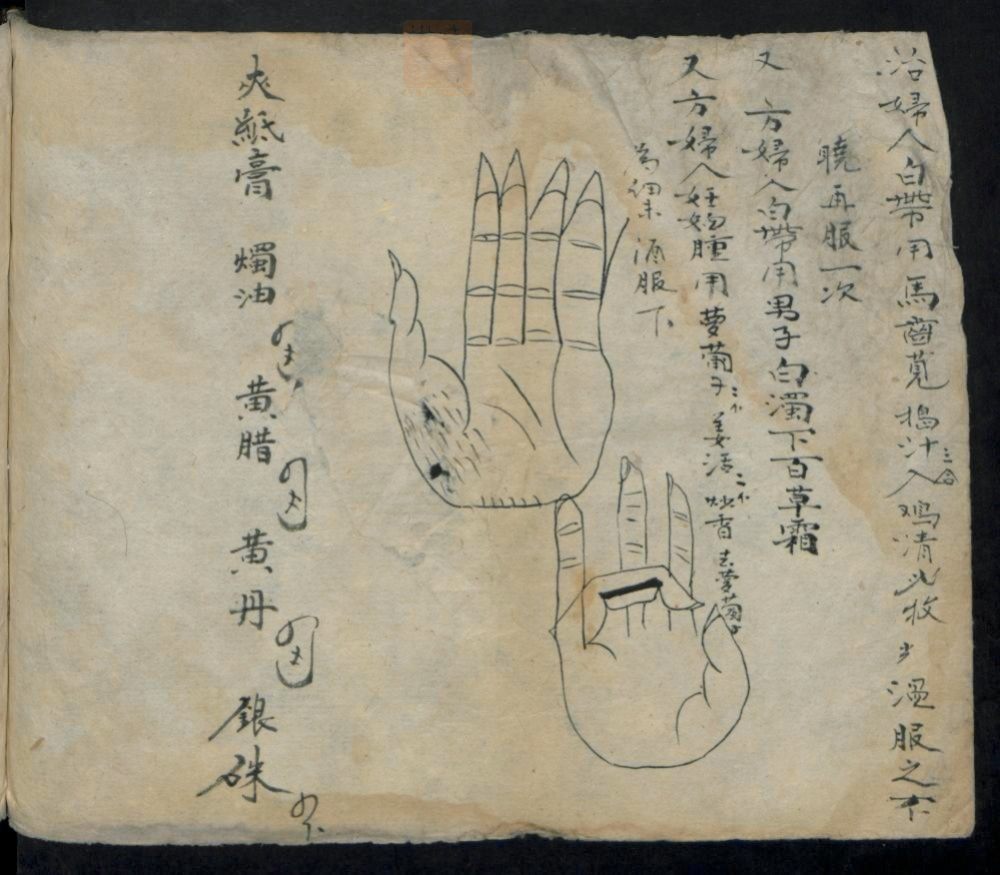 治婦人白帶用馬齒莧搗汁三合入鸡清弍枚 少温服之不
曉再服一次
又方婦人白帶用男子白濁下百草霜
又方婦人妊娠腫用蔔子 姜活 炒香去蔔子
為細末酒服下
夾紙膏 燭油 黄腊 黄丹 銀硃